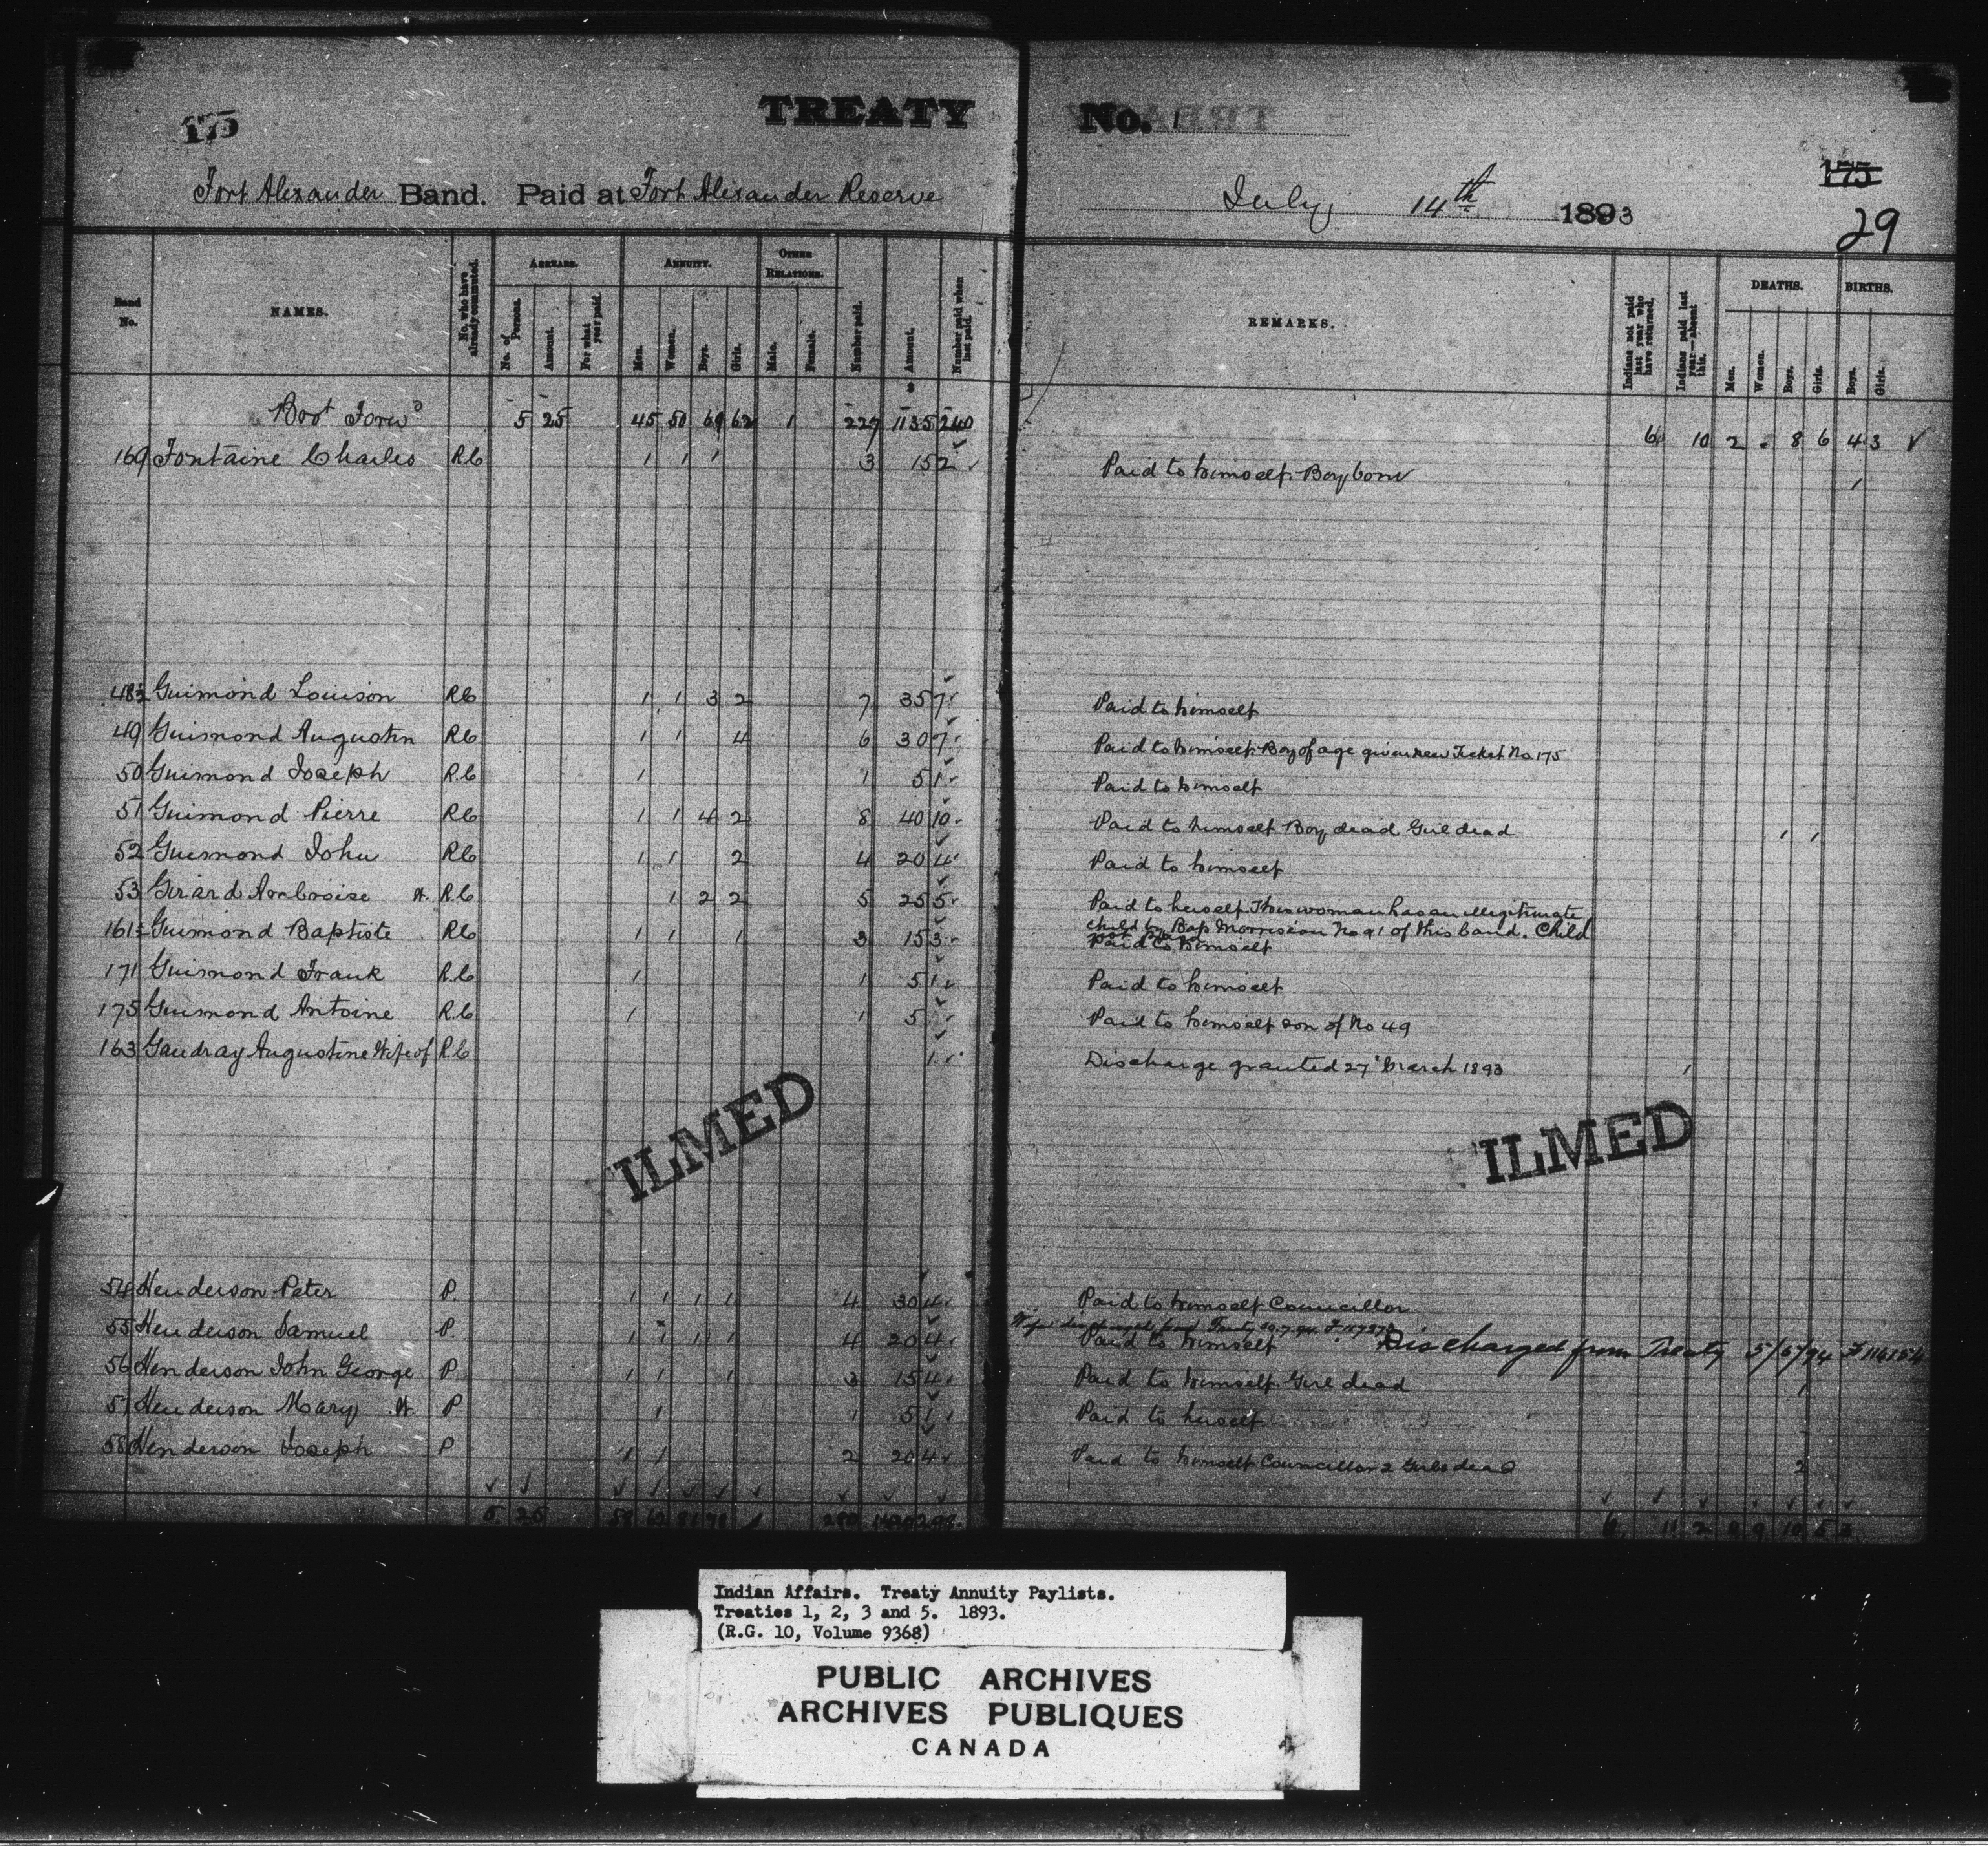 175
TREATY No. 1
175
29
Fort Alexander Band. Paid at Fort Alexander Reserve July 14th 1893
Band No. NAMES. No. who have already commuted. ARREARS. No. of Persons. Amount. For what year paid. ANNUITY. Men. Women. Boys. Girls. OTHER RELATIONS. Male. Female. Number paid. Amount. Number paid when last paid. REMARKS. Indians not paid last year who have returned. Indians paid last year—absent this. DEATHS. Men. Women. Boys. Girls. BIRTHS. Boys. Girls.
Brot Forwd 5 25 45 50 69 62 1 227 1135 240 6 10 2 8 6 4 3
169 Fontaine Charles RC 1 1 1 3 15 2 Paid to himself. Boy born 1
48½ Guimond Louison RC 1 1 3 2 7 35 7 Paid to himself
49 Guimond Augustin RC 1 1 4 6 30 7 Paid to himself. Boy of age given new Ticket No. 175
50 Guimond Joseph R.C 1 1 5 1 Paid to himself
51 Guimond Pierre RC 1 1 4 2 8 40 10 Paid to himself Boy dead Girl dead 1 1
52 Guimond John RC 1 1 2 4 20 4 Paid to himself
53 Girard Ambroise W. R.C 1 2 2 5 25 5 Paid to herself. This woman has an illegitimate
child by Bap Morrisseau No 91 of this band. Child
161½ Guimond Baptiste RC 1 1 1 3 15 3 Paid to himself
171 Guimond Frank R.C 1 1 5 1 Paid to himself
175 Guimond Antoine R.C 1 1 5 Paid to himself son of No 49
163 Gaudray Augustine Wife of R.C 1 Discharge granted 27 March 1893 1
ILMED
ILMED
54 Henderson Peter P. 1 1 1 1 4 30 4 Paid to himself Councillor
Wife discharged from Treaty
55 Henderson Samuel P. 1 1 1 1 4 20 4 Paid to himself Discharged from Treaty 5/6/94
56 Henderson John George P 1 1 1 3 15 4 Paid to himself Girl dead 1
57 Henderson Mary W. P 1 1 5 1 Paid to herself
58 Henderson Joseph P 1 1 2 20 4 Paid to himself Councillor 2 Girls dead 2
5 25 58 62 81 78 1 280
6 11 2 9 10 5 3
Indian Affairs. Treaty Annuity Paylists.
Treaties 1, 2, 3 and 5. 1893.
(R.G. 10, Volume 9368)
PUBLIC ARCHIVES
ARCHIVES PUBLIQUES
CANADA